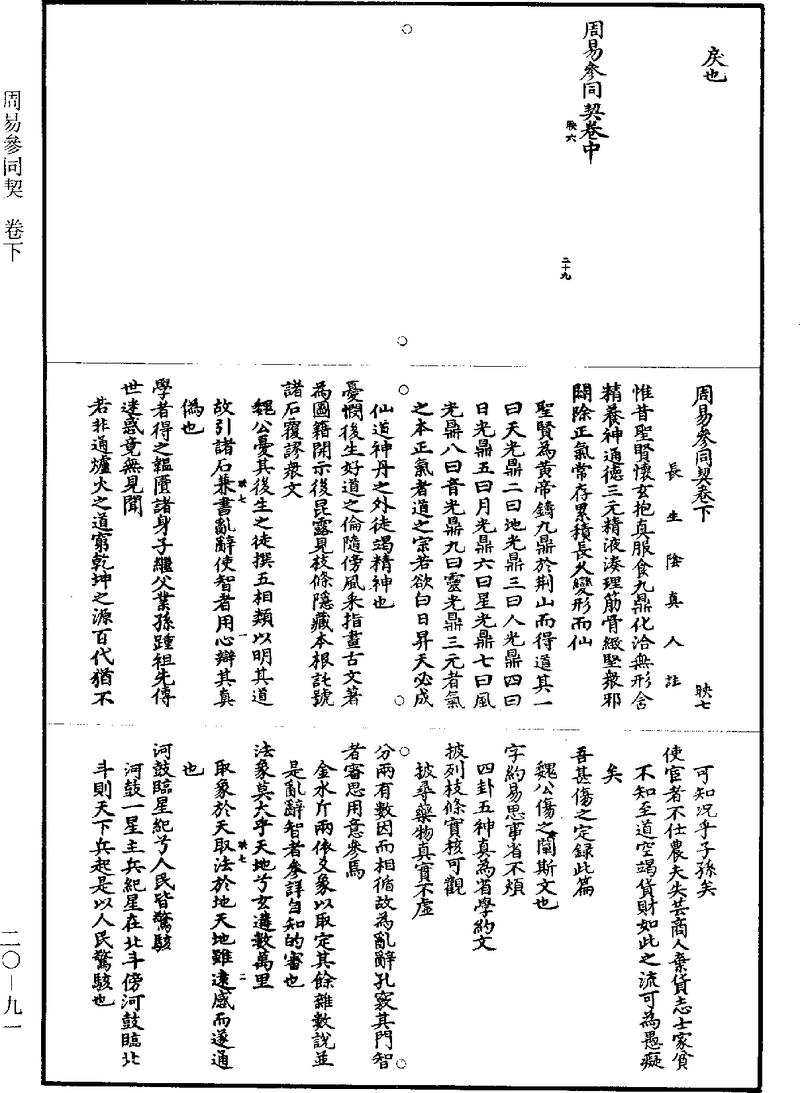 周易參同契　卷下
二〇—九一
戾也
周易參同契卷中
映六
二十九
周易參同契卷下
映七
長生陰真人註
惟昔聖賢懷玄抱真服食九鼎化洽無形含
精養神通德三元精液湊理筋骨緻堅衆邪
闢除正氣常存累積長久變形而仙
聖賢為黃帝鑄九鼎於荆山而得道其一
曰天光鼎二曰地光鼎三曰人光鼎四曰
日光鼎五曰月光鼎六曰星光鼎七曰風
光鼎八曰音光鼎九曰靈光鼎三元者氣
之本正氣者道之宗若欲白日昇天必成
仙道神丹之外徒竭精神也
憂憫後生好道之倫隨傍風采指畫古文著
為圖籍開示後昆露見枝條隱藏本根託號
諸石覆謬衆文
魏公憂其後生之徒撰五相類以明其道
故引諸石兼書亂辭使智者用心辯其真
映七
一
偽也
學者得之韞匵諸身子繼父業孫踵祖先傳
世迷惑竟無見聞
若非通爐火之道窮乾坤之源百代猶不
可知況乎子孫矣
使宦者不仕農夫失芸商人棄貨志士家貧
不知至道空竭貨財如此之流可為愚癡
矣
吾甚傷之定録此篇
魏公傷之闡斯文也
字約易思事省不煩
四卦五神真為省學約文
披列枝條實核可觀
披尋藥物真實不虛
分兩有數因而相循故為亂辭孔竅其門智
者審思用意參焉
金水斤兩依爻象以取定其餘雜數說並
是亂辭智者參詳自知的審也
法象莫大乎天地兮玄溝數萬里
取象於天取法於地天地雖遠感而遂通
映七
二
也
河鼓臨星紀兮人民皆驚駭
河鼓一星主兵紀星在北斗傍河鼓臨北
斗則天下兵起是以人民驚駭也